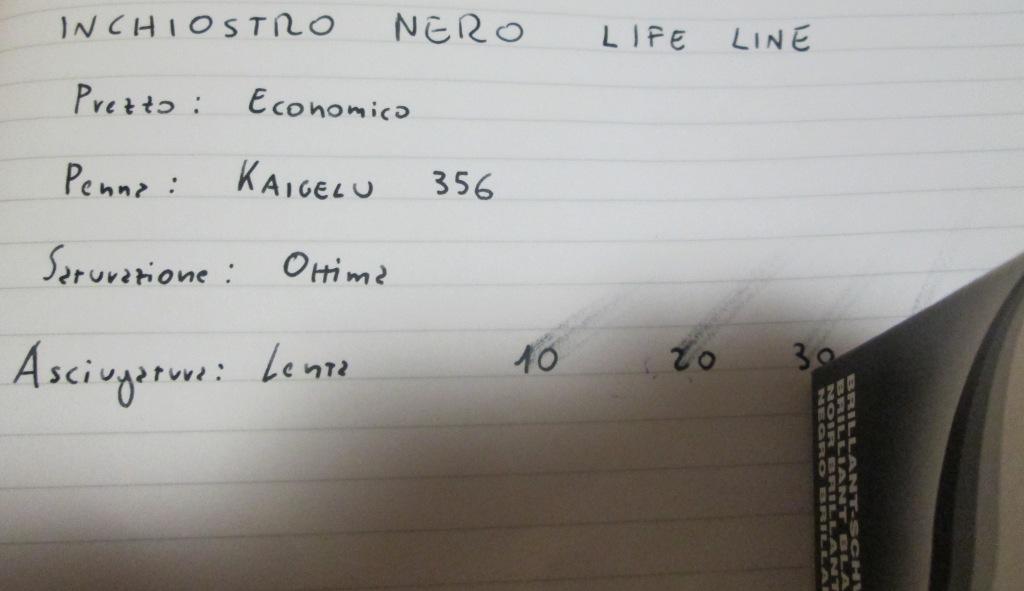 INCHIOSTRO NERO LIFE LINE
Prezzo: Economico
Penna: KAIGELU 356
Saturazione: Ottima
Asciugatura: Lenta 10 20 30
BRILLANT-SCHW
BRILLIANT BLA
NOIR BRILLANT
NEGRO BRILLA